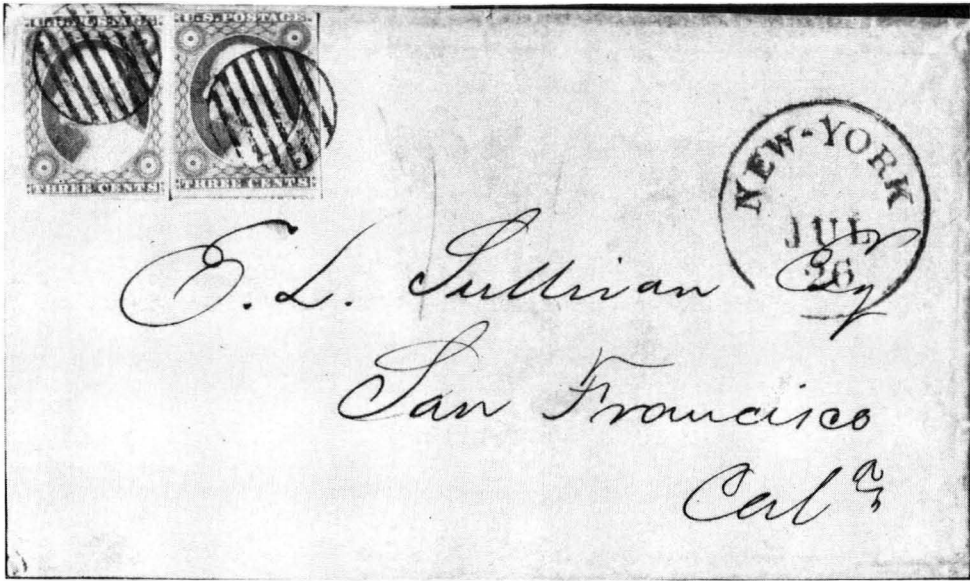 U.S. POSTAGE.
THREE CENTS
THREE CENTS
NEW-YORK
JUL
26
E. L. Sullivan Esq
San Francisco
Cal a